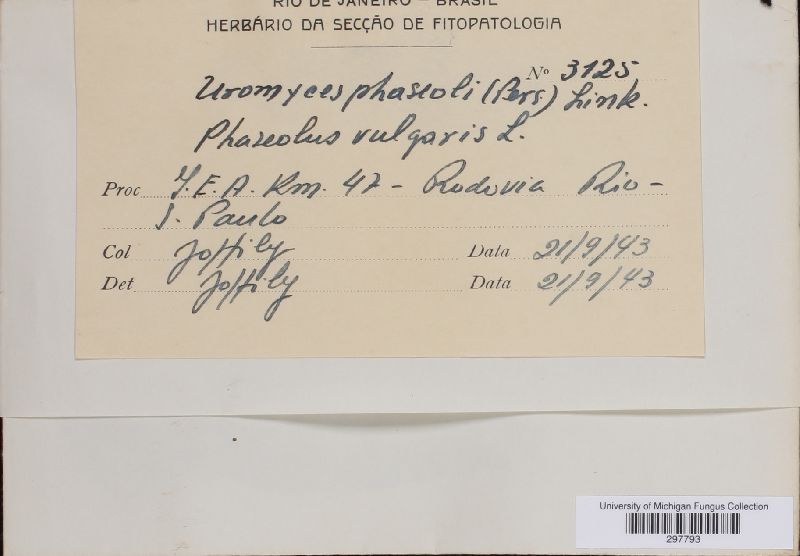 RIO DE JANEIRO - BRASIL
HERBÁRIO DA SECÇÃO DE FITOPATOLOGIA
Nº 3125
Uromyces phaseoli (Pers) Link.
Phaseolus vulgaris L.
Proc I.E.A. Km. 47 - Rodovia Rio -
S. Paulo
Col Joffily Data 21/9/43
Det Joffily Data 21/9/43
University of Michigan Fungus Collection
297793